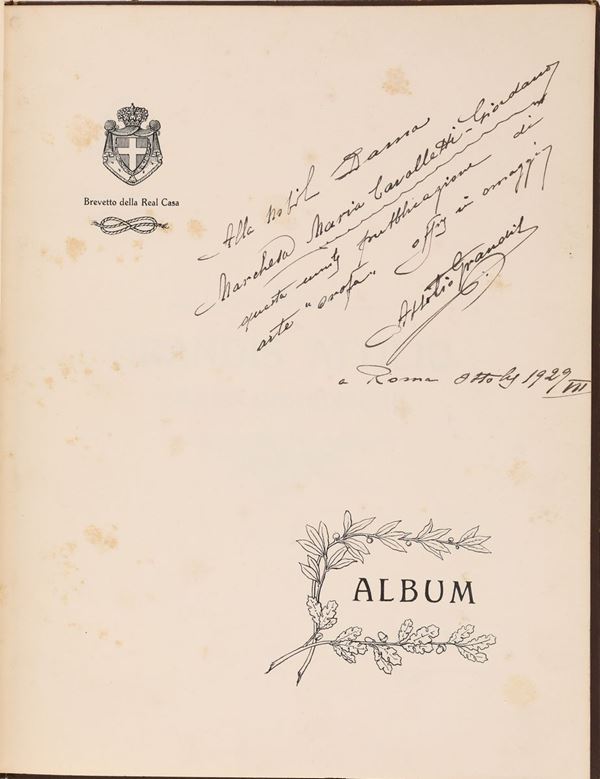 Brevetto della Real Casa
Alla nobil Dama
Marchesa Maria Cavalletti-Giordano
questa umile pubblicazione di
arte "orafa" offre in omaggio
Attilio
a Roma 1929 VII
ALBUM